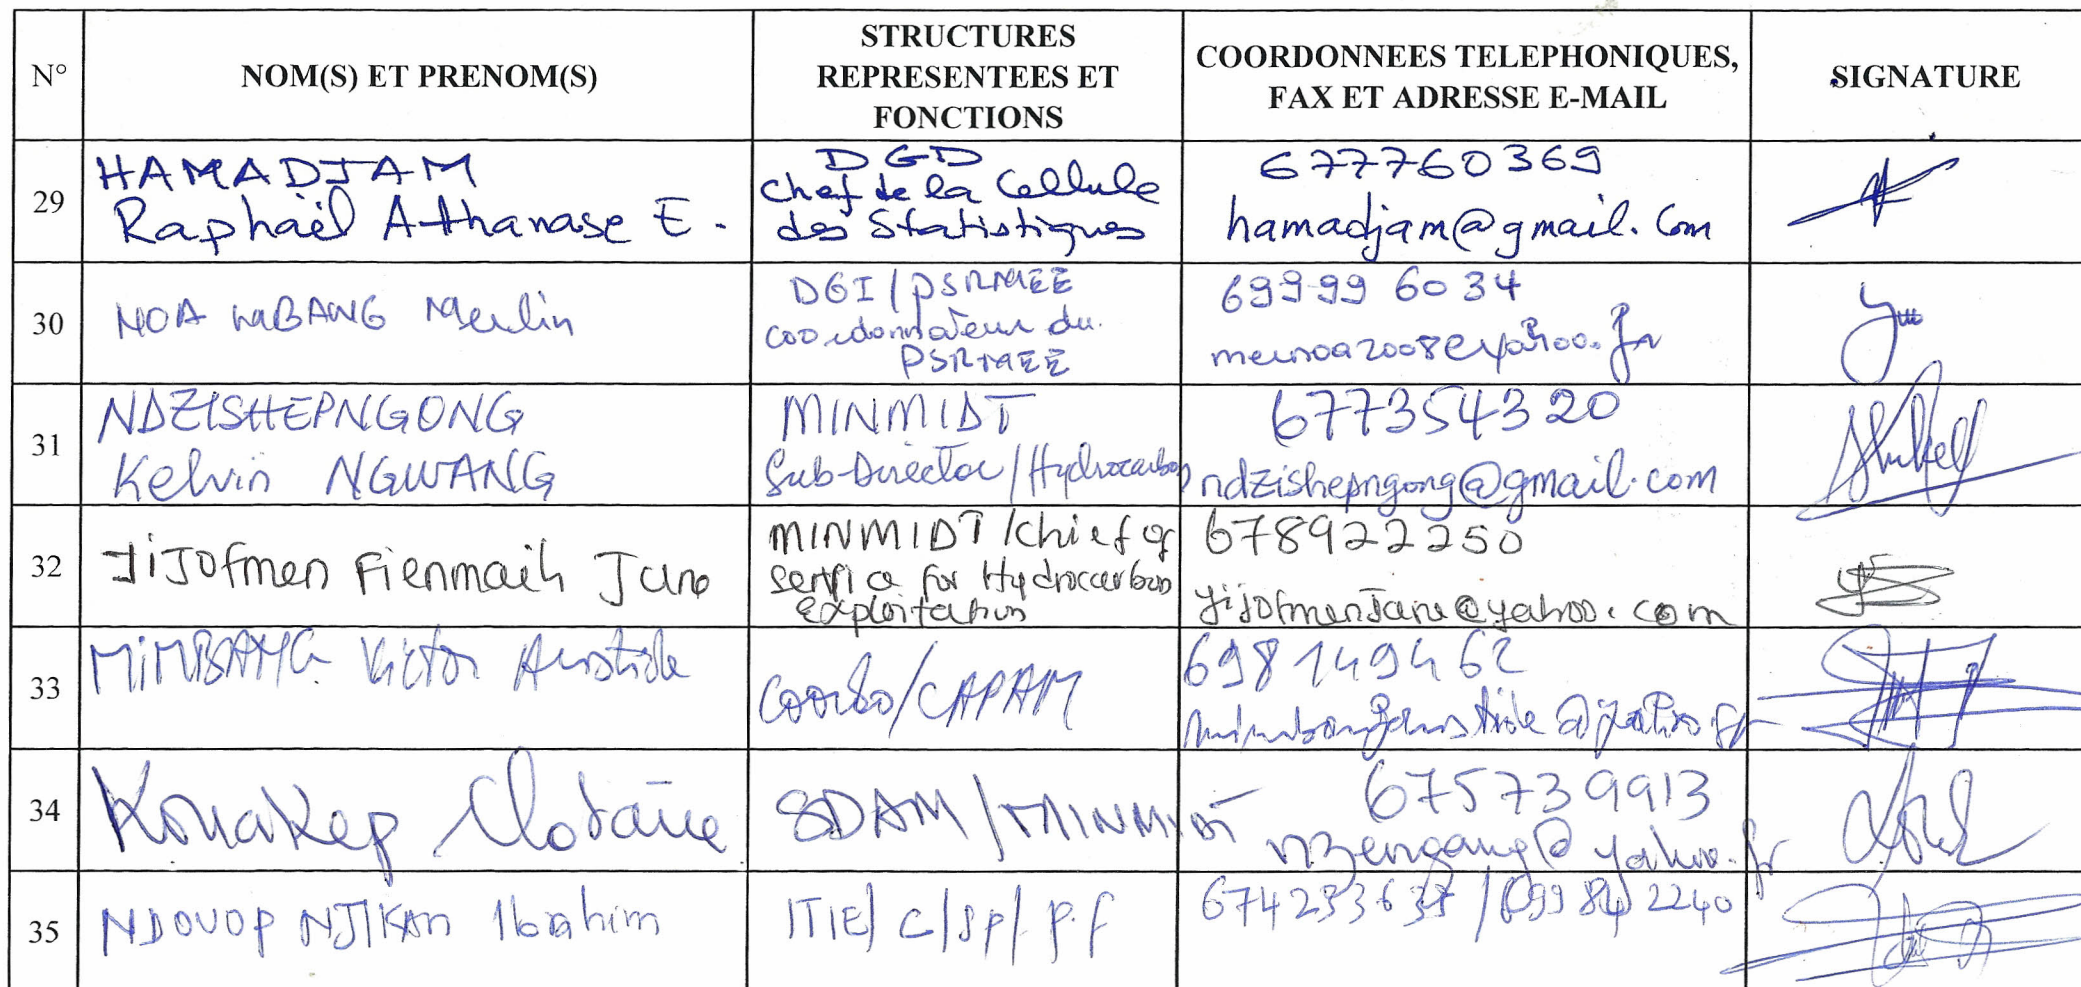 N°
NOM(S) ET PRENOM(S)
STRUCTURES
REPRESENTEES ET
FONCTIONS
COORDONNEES TELEPHONIQUES,
FAX ET ADRESSE E-MAIL
SIGNATURE
29
HAMADJAM
Raphaël Athanase E.
DGD
Chef de la Cellule
des Statistiques
677760369
hamadjam@gmail.com
30
NOA MBANG Merlin
DGI/PSRMEE
coordonnateur du
PSRMEE
699996034
mernoa2008@yahoo.fr
31
NDZISHEPNGONG
Kelvin NGWANG
MINMIDT
Sub-Director/Hydrocarbon
677354320
ndzishepngong@gmail.com
32
JiJofmen Fienmaih Jane
MINMIDT/Chief of
service for Hydrocarbon
Exploitation
678922250
jijofmenjane@yahoo.com
33
MIMBANG Victor Aristide
Coordo/CAPAM
698149462
34
Kouakep Clotaire
SDAM/MINMIDT
675739913
nzengang@yahoo.fr
35
NDOUOP NJIKAM Ibrahim
ITIE/C/SP/P.F